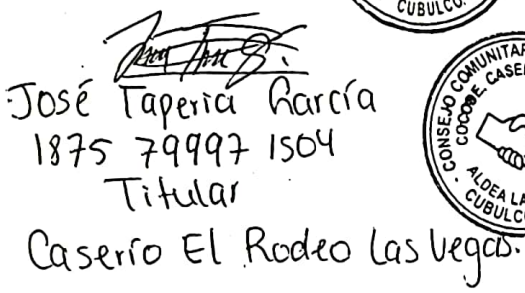 CUBULCO.
José Taperia García
1875 79997 1504
Titular
Caserío El Rodeo Las Vegas.
CONSEJO COMUNITAR
COCODE, CASER
ALDEA LA
CUBULCO